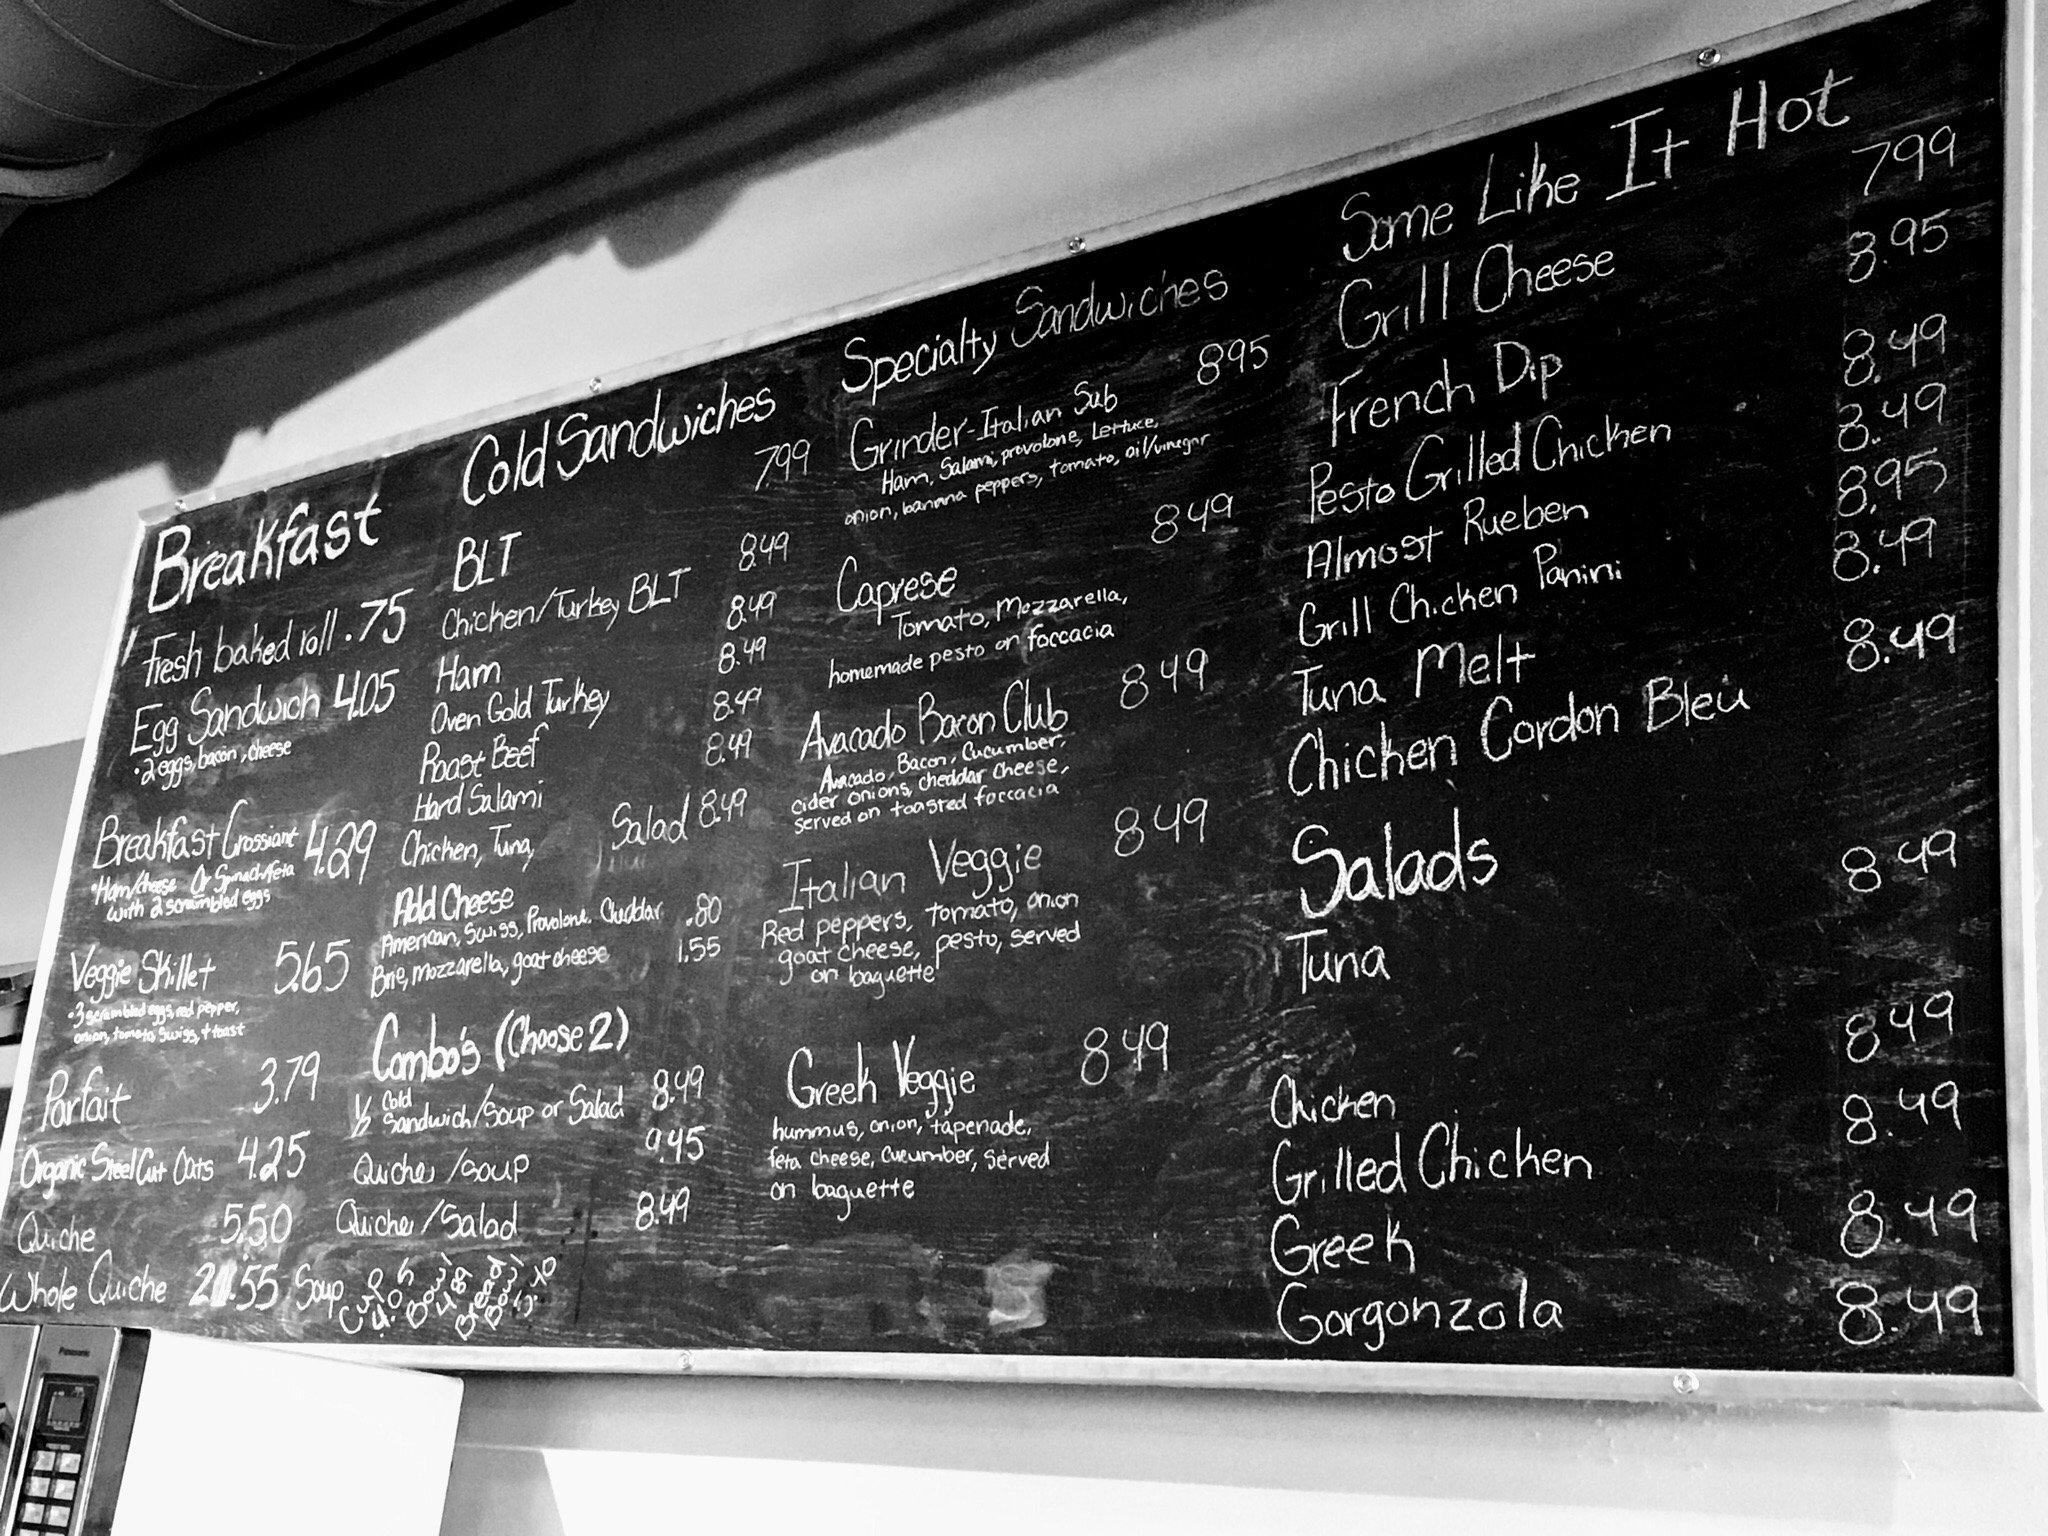 Breakfast
Fresh baked roll .75
Egg Sandwich 4.05
• 2 eggs, bacon, cheese
Breakfast Crossiant 4.29
• Ham/cheese Or Spinach/feta
with 2 scrambled eggs
Veggie Skillet 5.65
• 3 scrambled eggs, red pepper,
onion, tomato, swiss, + toast
Parfait 3.79
Organic Steel Cut Oats 4.25
Quiche 5.50
Whole Quiche 21.55
Cold Sandwiches
BLT 799
Chicken/Turkey BLT 8.49
Ham 8.49
Oven Gold Turkey 8.49
Roast Beef 8.49
Hard Salami 8.49
Chicken, Tuna, Salad 8.49
Add Cheese
American, Swiss, Provolone Cheddar .80
Brie, mozzarella, goat cheese 1.55
Combo's (Choose 2)
1/2 Cold
Sandwich/Soup or Salad 8.49
Quiche/soup 9.45
Quiche/Salad 8.49
Soup Cup Bowl 4.89 Bread Bowl
Specialty Sandwiches
Grinder-Italian Sub 895
Ham, Salami, provolone, Lettuce,
onion, banana peppers, tomato, oil/vinegar
Caprese 849
Tomato, Mozzarella,
homemade pesto on foccacia
Avacado Bacon Club 849
Avacado, Bacon, Cucumber,
cider onions, cheddar cheese,
served on toasted foccacia
Italian Veggie 849
Red peppers, tomato, onion
goat cheese, pesto, served
on baguette
Greek Veggie 849
hummus, onion, tapenade,
feta cheese, cucumber, served
on baguette
Some Like It Hot
Grill Cheese 799
French Dip 8.95
Pesto Grilled Chicken 8.49
Almost Rueben 8.49
Grill Chicken Panini 8.95
Tuna Melt 8.49
Chicken Cordon Bleu 8.49
Salads
Tuna 8.49
Chicken 8.49
Grilled Chicken 8.49
Greek 8.49
Gorgonzola 8.49
Panasonic